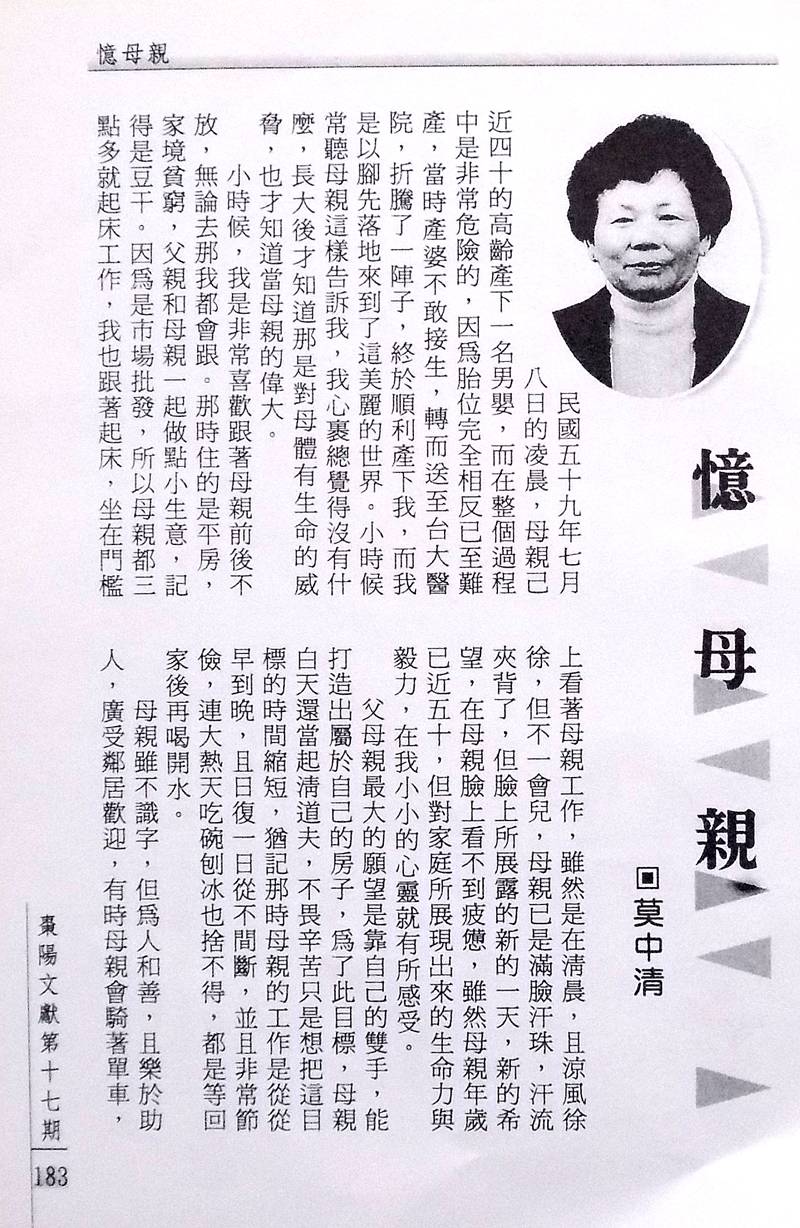 憶母親
憶母親
▣莫中清
民國五十九年七月
八日的凌晨，母親已
近四十的高齡產下一名男嬰，而在整個過程
中是非常危險的，因爲胎位完全相反已至難
產，當時產婆不敢接生，轉而送至台大醫
院，折騰了一陣子，終於順利產下我，而我
是以腳先落地來到了這美麗的世界。小時候
常聽母親這樣告訴我，我心裏總覺得沒有什
麼，長大後才知道那是對母體有生命的威
脅，也才知道當母親的偉大。
小時候，我是非常喜歡跟著母親前後不
放，無論去那我都會跟。那時住的是平房，
家境貧窮，父親和母親一起做點小生意，記
得是豆干。因爲是市場批發，所以母親都三
點多就起床工作，我也跟著起床，坐在門檻
上看著母親工作，雖然是在清晨，且涼風徐
徐，但不一會兒，母親已是滿臉汗珠，汗流
夾背了，但臉上所展露的新的一天，新的希
望，在母親臉上看不到疲憊，雖然母親年歲
已近五十，但對家庭所展現出來的生命力與
毅力，在我小小的心靈就有所感受。
父母親最大的願望是靠自己的雙手，能
打造出屬於自己的房子，爲了此目標，母親
白天還當起清道夫，不畏辛苦只是想把這目
標的時間縮短，猶記那時母親的工作是從從
早到晚，且日復一日從不間斷，並且非常節
儉，連大熱天吃碗刨冰也捨不得，都是等回
家後再喝開水。
母親雖不識字，但爲人和善，且樂於助
人，廣受鄰居歡迎，有時母親會騎著單車，
棗陽文獻第十七期
183